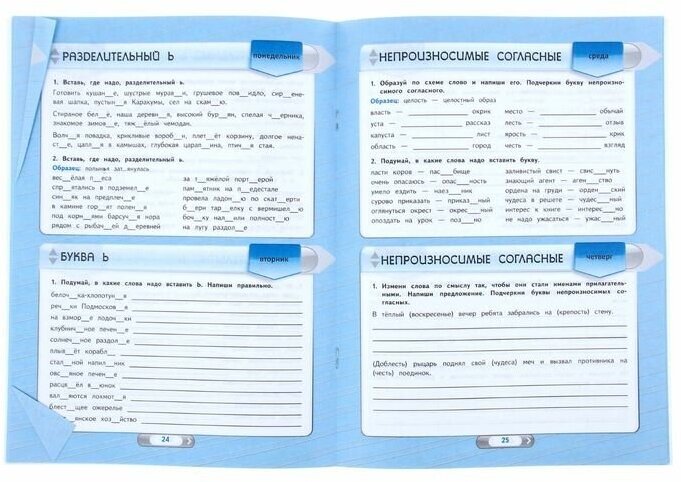 РАЗДЕЛИТЕЛЬНЫЙ Ь
понедельник
1. Вставь, где надо, разделительный ь.
Готовить кушан__е, шустрые мурав__и, грушевое пов__идло, сир__ене-
вая шапка, пустын__я Каракумы, сел на скам__ю.
Стираное бел__ё, наша деревн__я, высокий бур__ян, спелая ч__ерника,
знакомое зимов__е, тяж__ёлый чемодан.
Волч__я повадка, крикливые вороб__и, плет__ёт корзину, долгое нена-
ст__е, цапл__я в камышах, глубокая царап__ина, птич__я стая.
2. Вставь, где надо, разделительный ь.
Образец: полынья зат_янулась
вес__ёлая п__еса
спр__ятались в подземел__е
син__як на предплеч__е
в камине гор__ят полен__я
под корн__ями барсуч__я нора
рядом с рыбач__ей д__еревней
за т__яжёлой порт__ерой
пам__ятник на п__едестале
провела ладон__ю по скат__ерти
б__ери тар__елку с вермишел__ю
боч__ку нал__или полност__ю
на лугу раздол__е
БУКВА Ь
вторник
1. Подумай, в какие слова надо вставить Ь. Напиши правильно.
белоч__ка-хлопотун__я
реч__ки Подмосков__я
на взмор__е лодоч__ки
клубнич__ное печен__е
солнеч__ное раздол__е
плыв__ёт корабл__
стал__ной напил__ник
овс__яное печен__е
расцв__ёл в__юнок
вал__яются лохмот__я
блест__ящее ожерелье
__янское хоз__яйство
24
НЕПРОИЗНОСИМЫЕ СОГЛАСНЫЕ
среда
1. Образуй по схеме слово и напиши его. Подчеркни букву непроизно-
симого согласного.
Образец: целость — целостный образ
власть — окрик
уста — рассказ
капуста — лист
область — город
место — обычай
лесть — отзыв
ярость — крик
честь — взгляд
2. Подумай, в какие слова надо вставить букву.
ласти коров — пас__бище
очень опасаюсь — опас__ность
умело ездить — наез__ник
сурово приказать — приказ__ный
оглянуться окрест — окрес__ный
опоздать на урок — поз__но
заливистый свист — свис__нуть
знающий агент — аген__ство
ордена на груди — орден__ский
чудеса в решете — чудес__ный
интерес к книге — интерес__но
не надо ужасаться — ужас__ный
НЕПРОИЗНОСИМЫЕ СОГЛАСНЫЕ
четверг
1. Измени слова по смыслу так, чтобы они стали именами прилагатель-
ными. Напиши предложение. Подчеркни буквы непроизносимых со-
гласных.
В тёплый (воскресенье) вечер ребята забрались на (крепость) стену.
(Доблесть) рыцарь поднял свой (чудеса) меч и вызвал противника на
(честь) поединок.
25